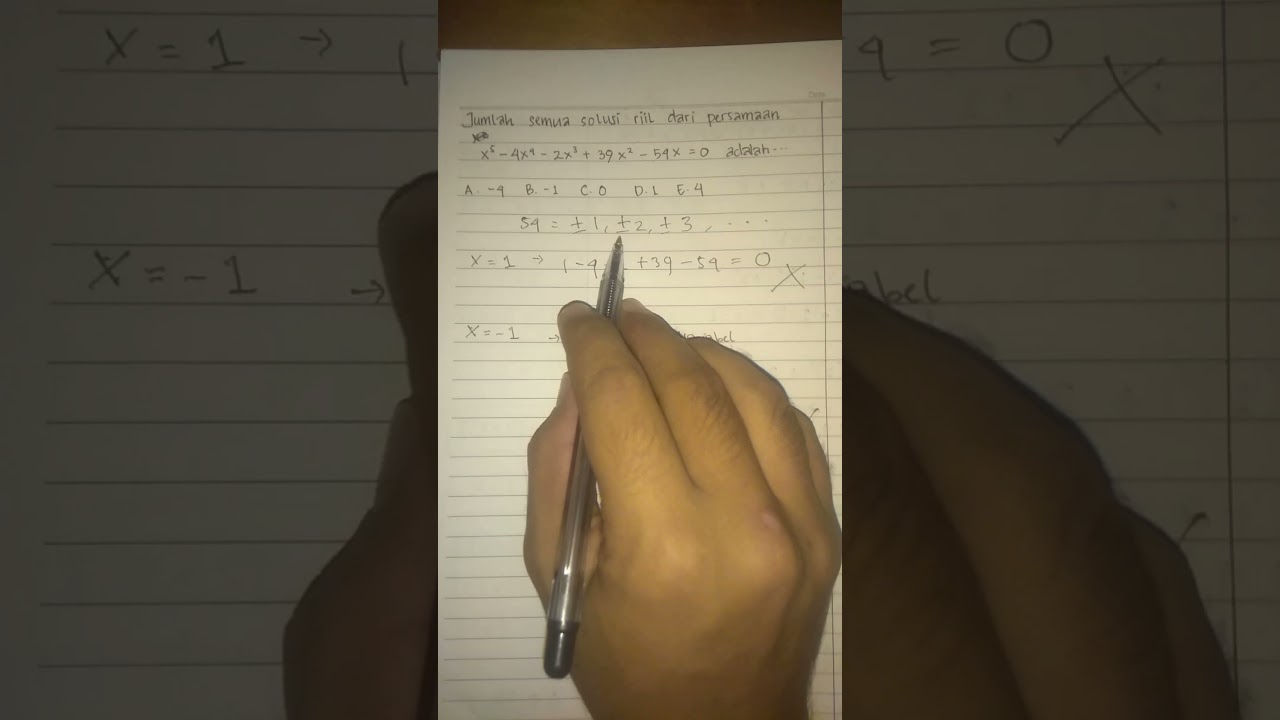 Jumlah semua solusi riil dari persamaan
x⁵ - 4x⁴ - 2x³ + 39x² - 54x = 0 adalah...
A. -4 B. -1 C. 0 D. 1 E. 4
54 = ±1, ±2, ±3, ...
x = 1 → 1 - 4 + 39 - 54 = 0 X
x = -1 →